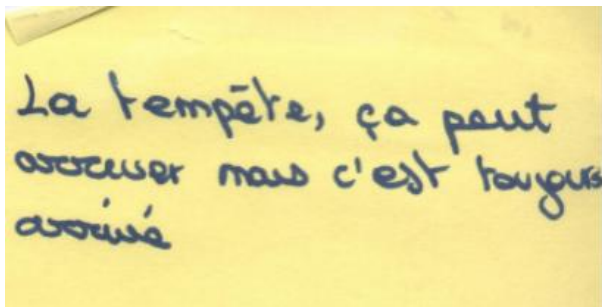 La tempête, ça peut
arriver mais c'est toujours
arrivé